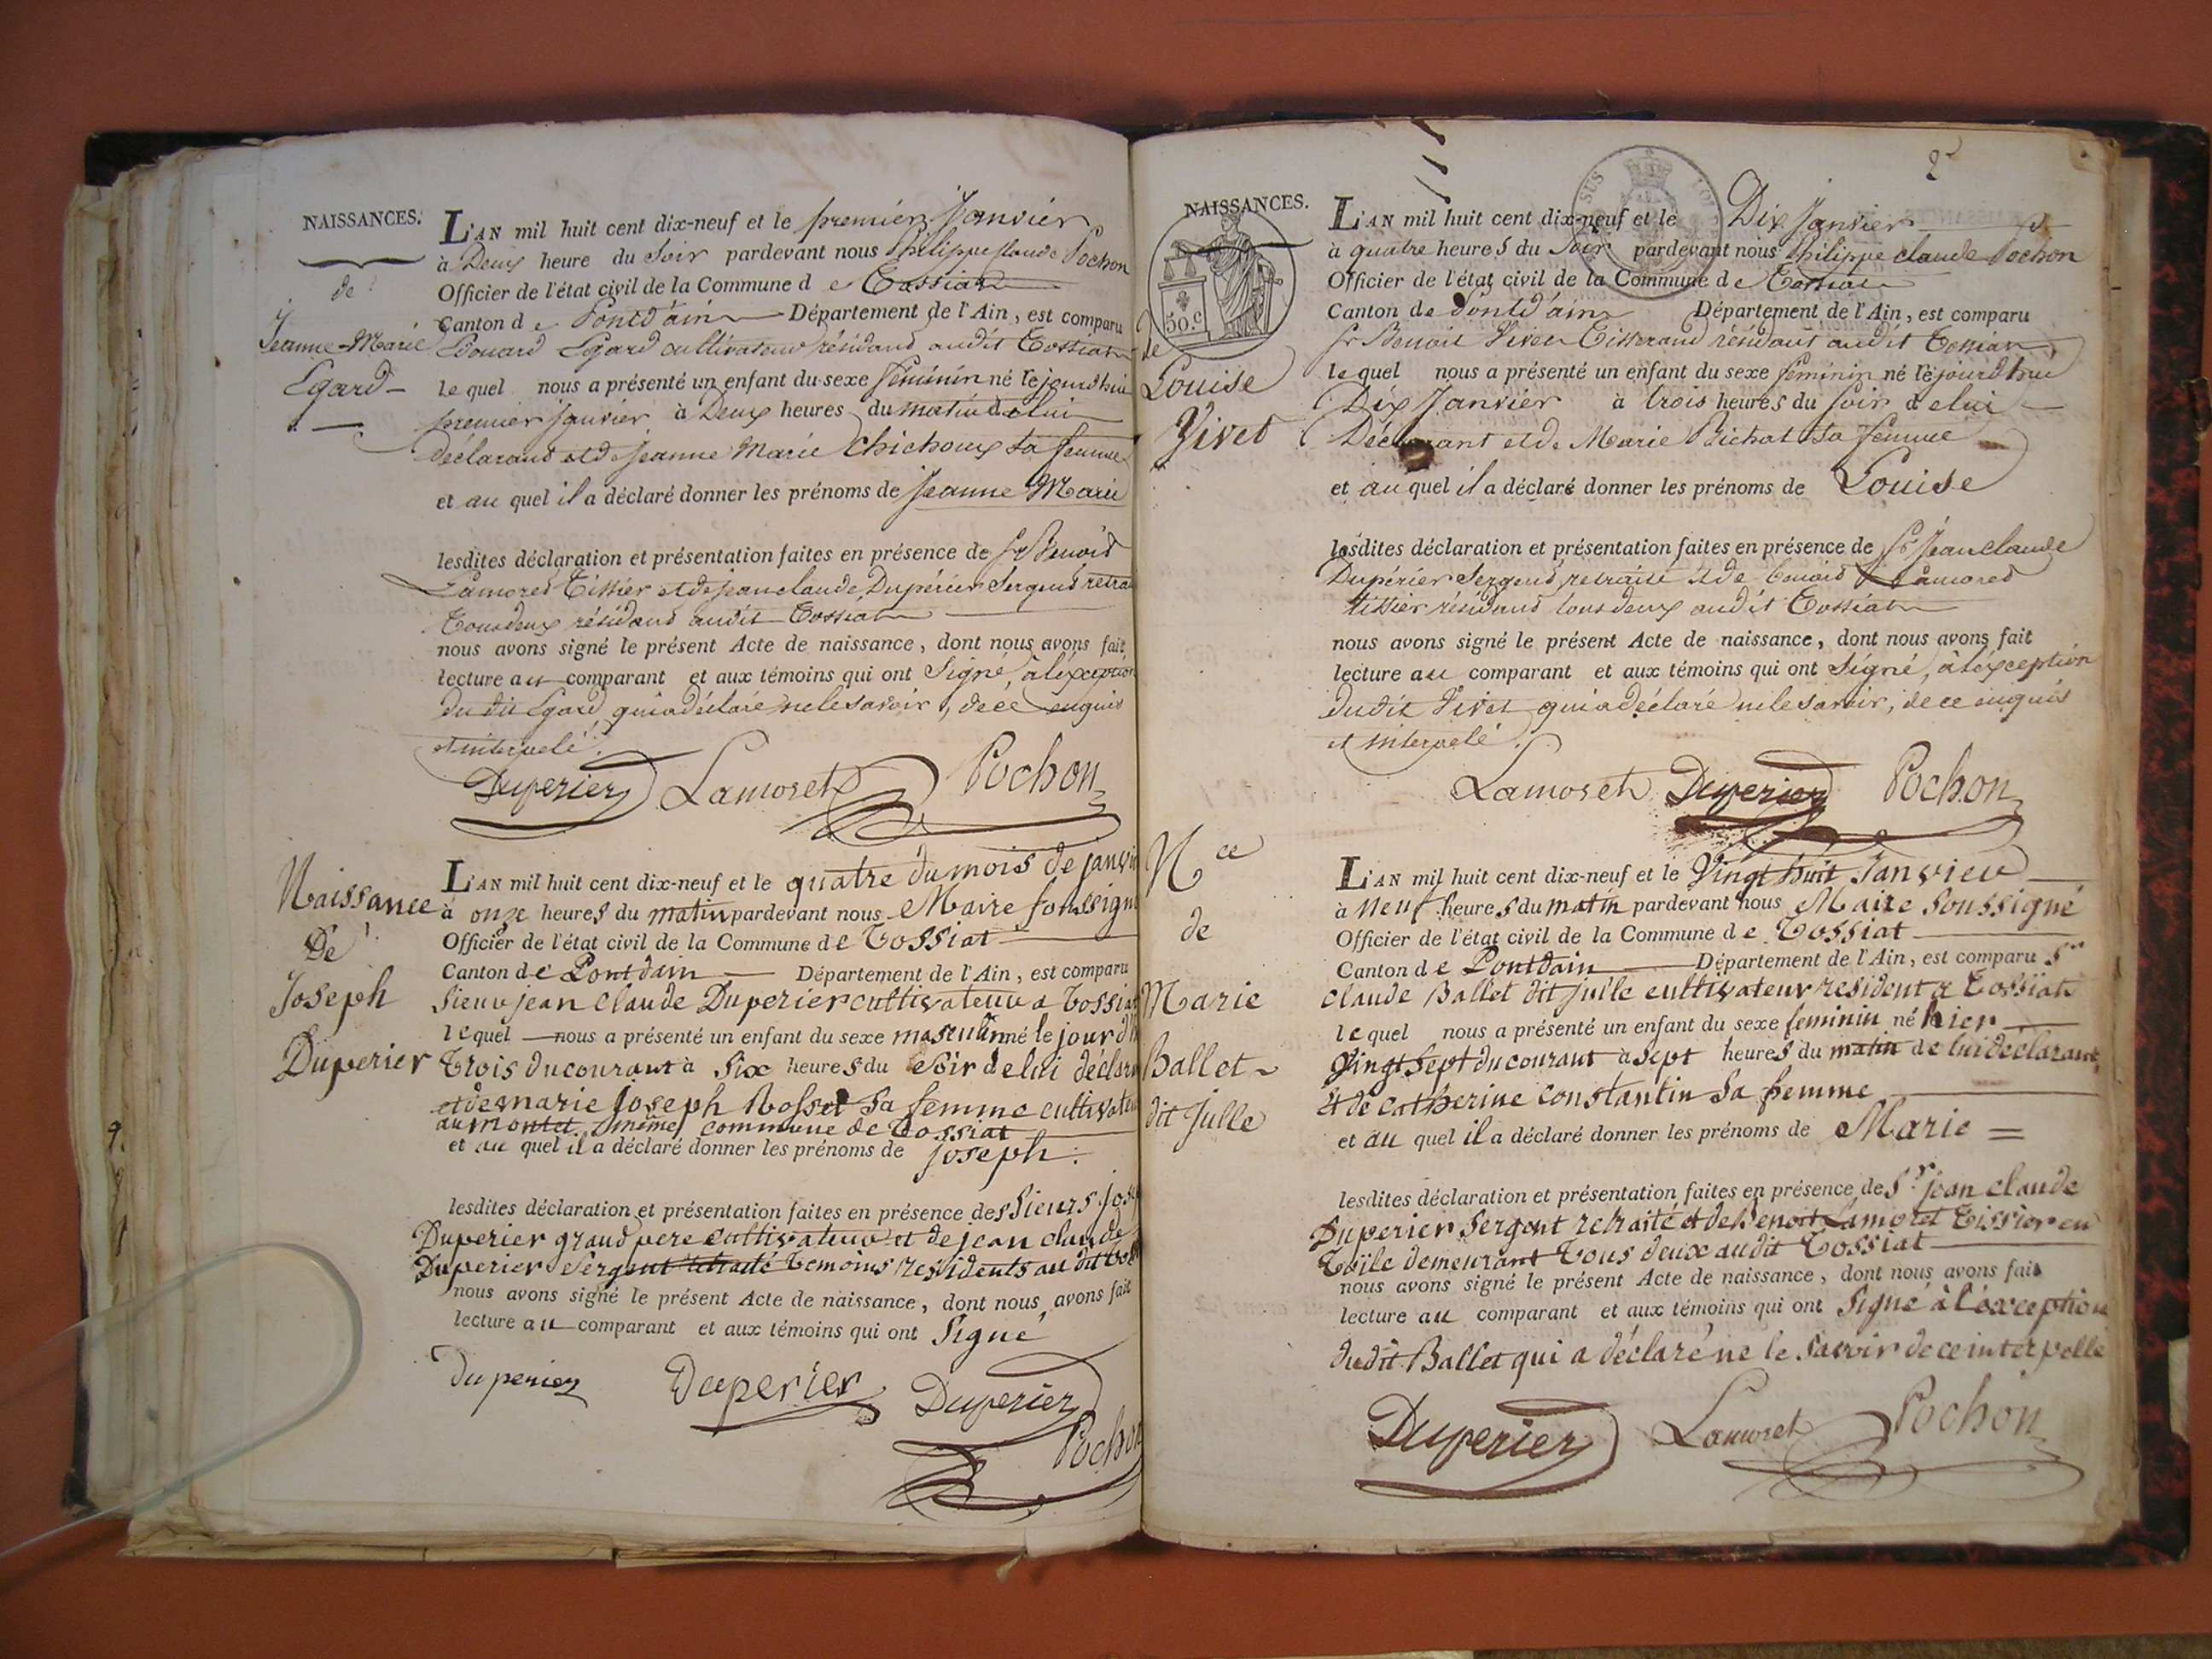 NAISSANCES.
de
Jeanne-Marie
Egard
L'AN mil huit cent dix-neuf et le premier Janvier
à Deux heure du Soir pardevant nous Philippe Claude Pochon
Officier de l'état civil de la Commune d e Tossiat
Canton d e Pontd'ain Département de l'Ain, est comparu
Edouard Egard cultivateur résidant audit Tossiat
le quel nous a présenté un enfant du sexe féminin né cejourdhui
premier janvier à Deux heures du matin de lui
déclarant et de jeanne Marie Chichoux sa femme
et au quel il a déclaré donner les prénoms de Jeanne Marie
lesdites déclaration et présentation faites en présence de Sr Benoit
Lamoret Tissier et de jean claude Dupérier Sergent retrai
Tous deux résidant audit Tossiat
nous avons signé le présent Acte de naissance, dont nous avons fait
lecture au comparant et aux témoins qui ont Signé, à l'éxception
du dit Egard qui a déclaré ne le savoir, de ce enquis
et interpelé.
Duperier Lamoret Pochon
Naissance
De
Joseph
Duperier
L'AN mil huit cent dix-neuf et le quatre du mois de janvi
à onze heures du matin pardevant nous Maire soussign
Officier de l'état civil de la Commune d e Tossiat
Canton d e Pontdain Département de l'Ain, est comparu
Sieur jean Claude Duperier cultivateur a Tossia
le quel nous a présenté un enfant du sexe masculin né le jour d'h
Trois du courant à Six heures du soir de lui déclara
et de marie joseph Rosset sa femme cultivateu
au montet même commune de Tossiat
et au quel il a déclaré donner les prénoms de joseph.
lesdites déclaration et présentation faites en présence des Sieurs jose
Duperier grand pere cultivateur et de jean claude
Duperier Sergent retraité temoins residents au dit Toss
nous avons signé le présent Acte de naissance, dont nous avons fait
lecture au comparant et aux témoins qui ont Signé
duperier Duperier Duperier
Pochon
2
NAISSANCES.
50.c
de
Louise
Vivet
L'AN mil huit cent dix-neuf et le Dix Janvier
à quatre heures du Soir pardevant nous Philippe claude Pochon
Officier de l'état civil de la Commune d e Tossiat
Canton de Pontd'ain Département de l'Ain, est comparu
Sr Benoit Vivet Tisserand résidant audit Tossiat
le quel nous a présenté un enfant du sexe féminin né cejourdhui
Dix Janvier à trois heures du soir d elui
Déclarant et de Marie Bichat sa femme
et au quel il a déclaré donner les prénoms de Louise
lesdites déclaration et présentation faites en présence de Sr Jean claude
Dupérier Sergent retraité et de benoit Lamoret
tissier résidant tous deux audit Tossiat
nous avons signé le présent Acte de naissance, dont nous avons fait
lecture au comparant et aux témoins qui ont Signé, à l'éxception
dudit Vivet qui a déclaré ne le savoir, de ce enquis
et interpelé.
Lamoret Duperier Pochon
Nce
de
Marie
Ballet
dit Julle
L'AN mil huit cent dix-neuf et le Vingt huit Janvier
à neuf heures du matin pardevant nous Maire soussigné
Officier de l'état civil de la Commune d e Tossiat
Canton d e Pontdain Département de l'Ain, est comparu Sr
Claude Ballet dit Julle cultivateur resident a Tossiat
le quel nous a présenté un enfant du sexe feminin né hier
Vingt Sept du courant à Sept heures du matin de lui declarant
et de catherine constantin sa femme
et au quel il a déclaré donner les prénoms de Marie
lesdites déclaration et présentation faites en présence de Sr jean claude
Duperier Sergent retraité et de Benoit Lamoret tissier en
Toile demeurant Tous deux audit Tossiat
nous avons signé le présent Acte de naissance, dont nous avons fait
lecture au comparant et aux témoins qui ont Signé à l'exception
dudit Ballet qui a déclaré ne le savoir de ce interpellé
Duperier Lamoret Pochon